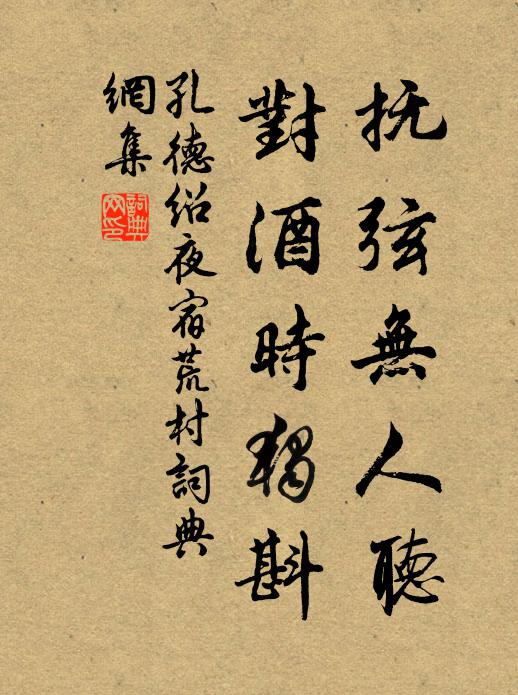 抚弦無人聽
對酒時獨斟
孔德绍夜宿荒村詞典
網集
詞典網印